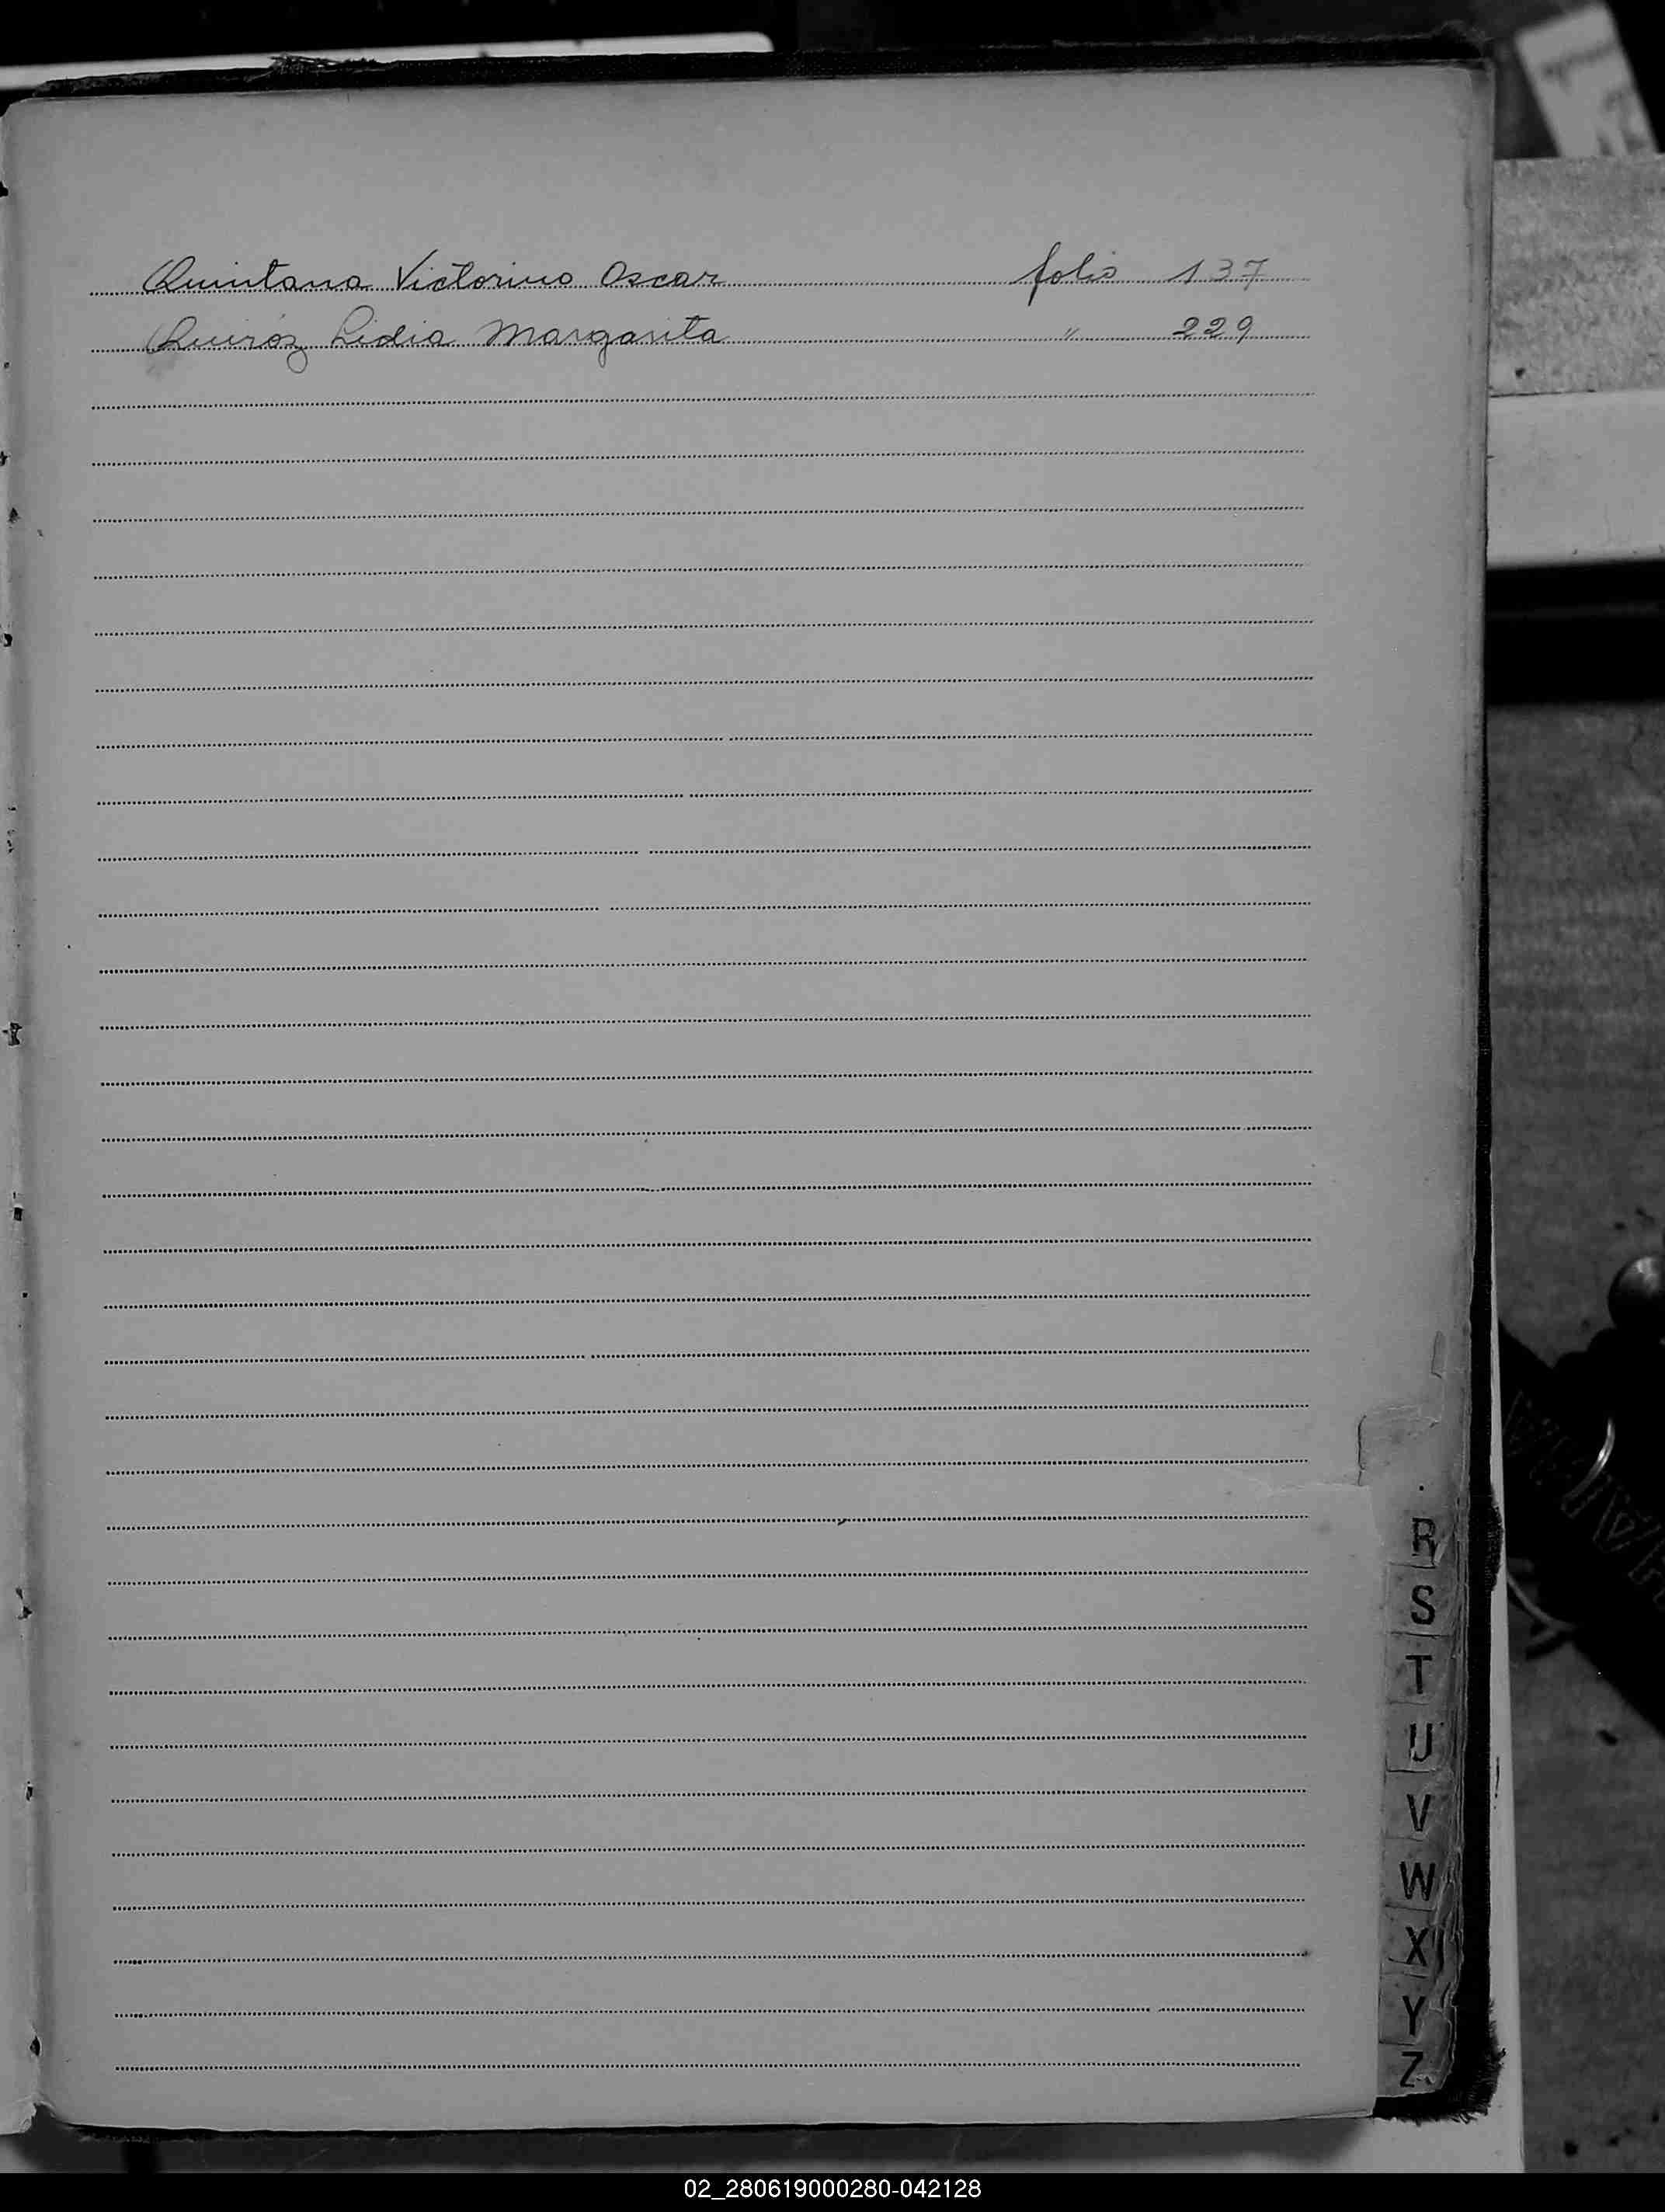 Quintana Victorino Oscar folio 137
Quiróz Lidia Margarita " 229
R
S
T
U
V
W
X
Y
Z
02_280619000280-042128